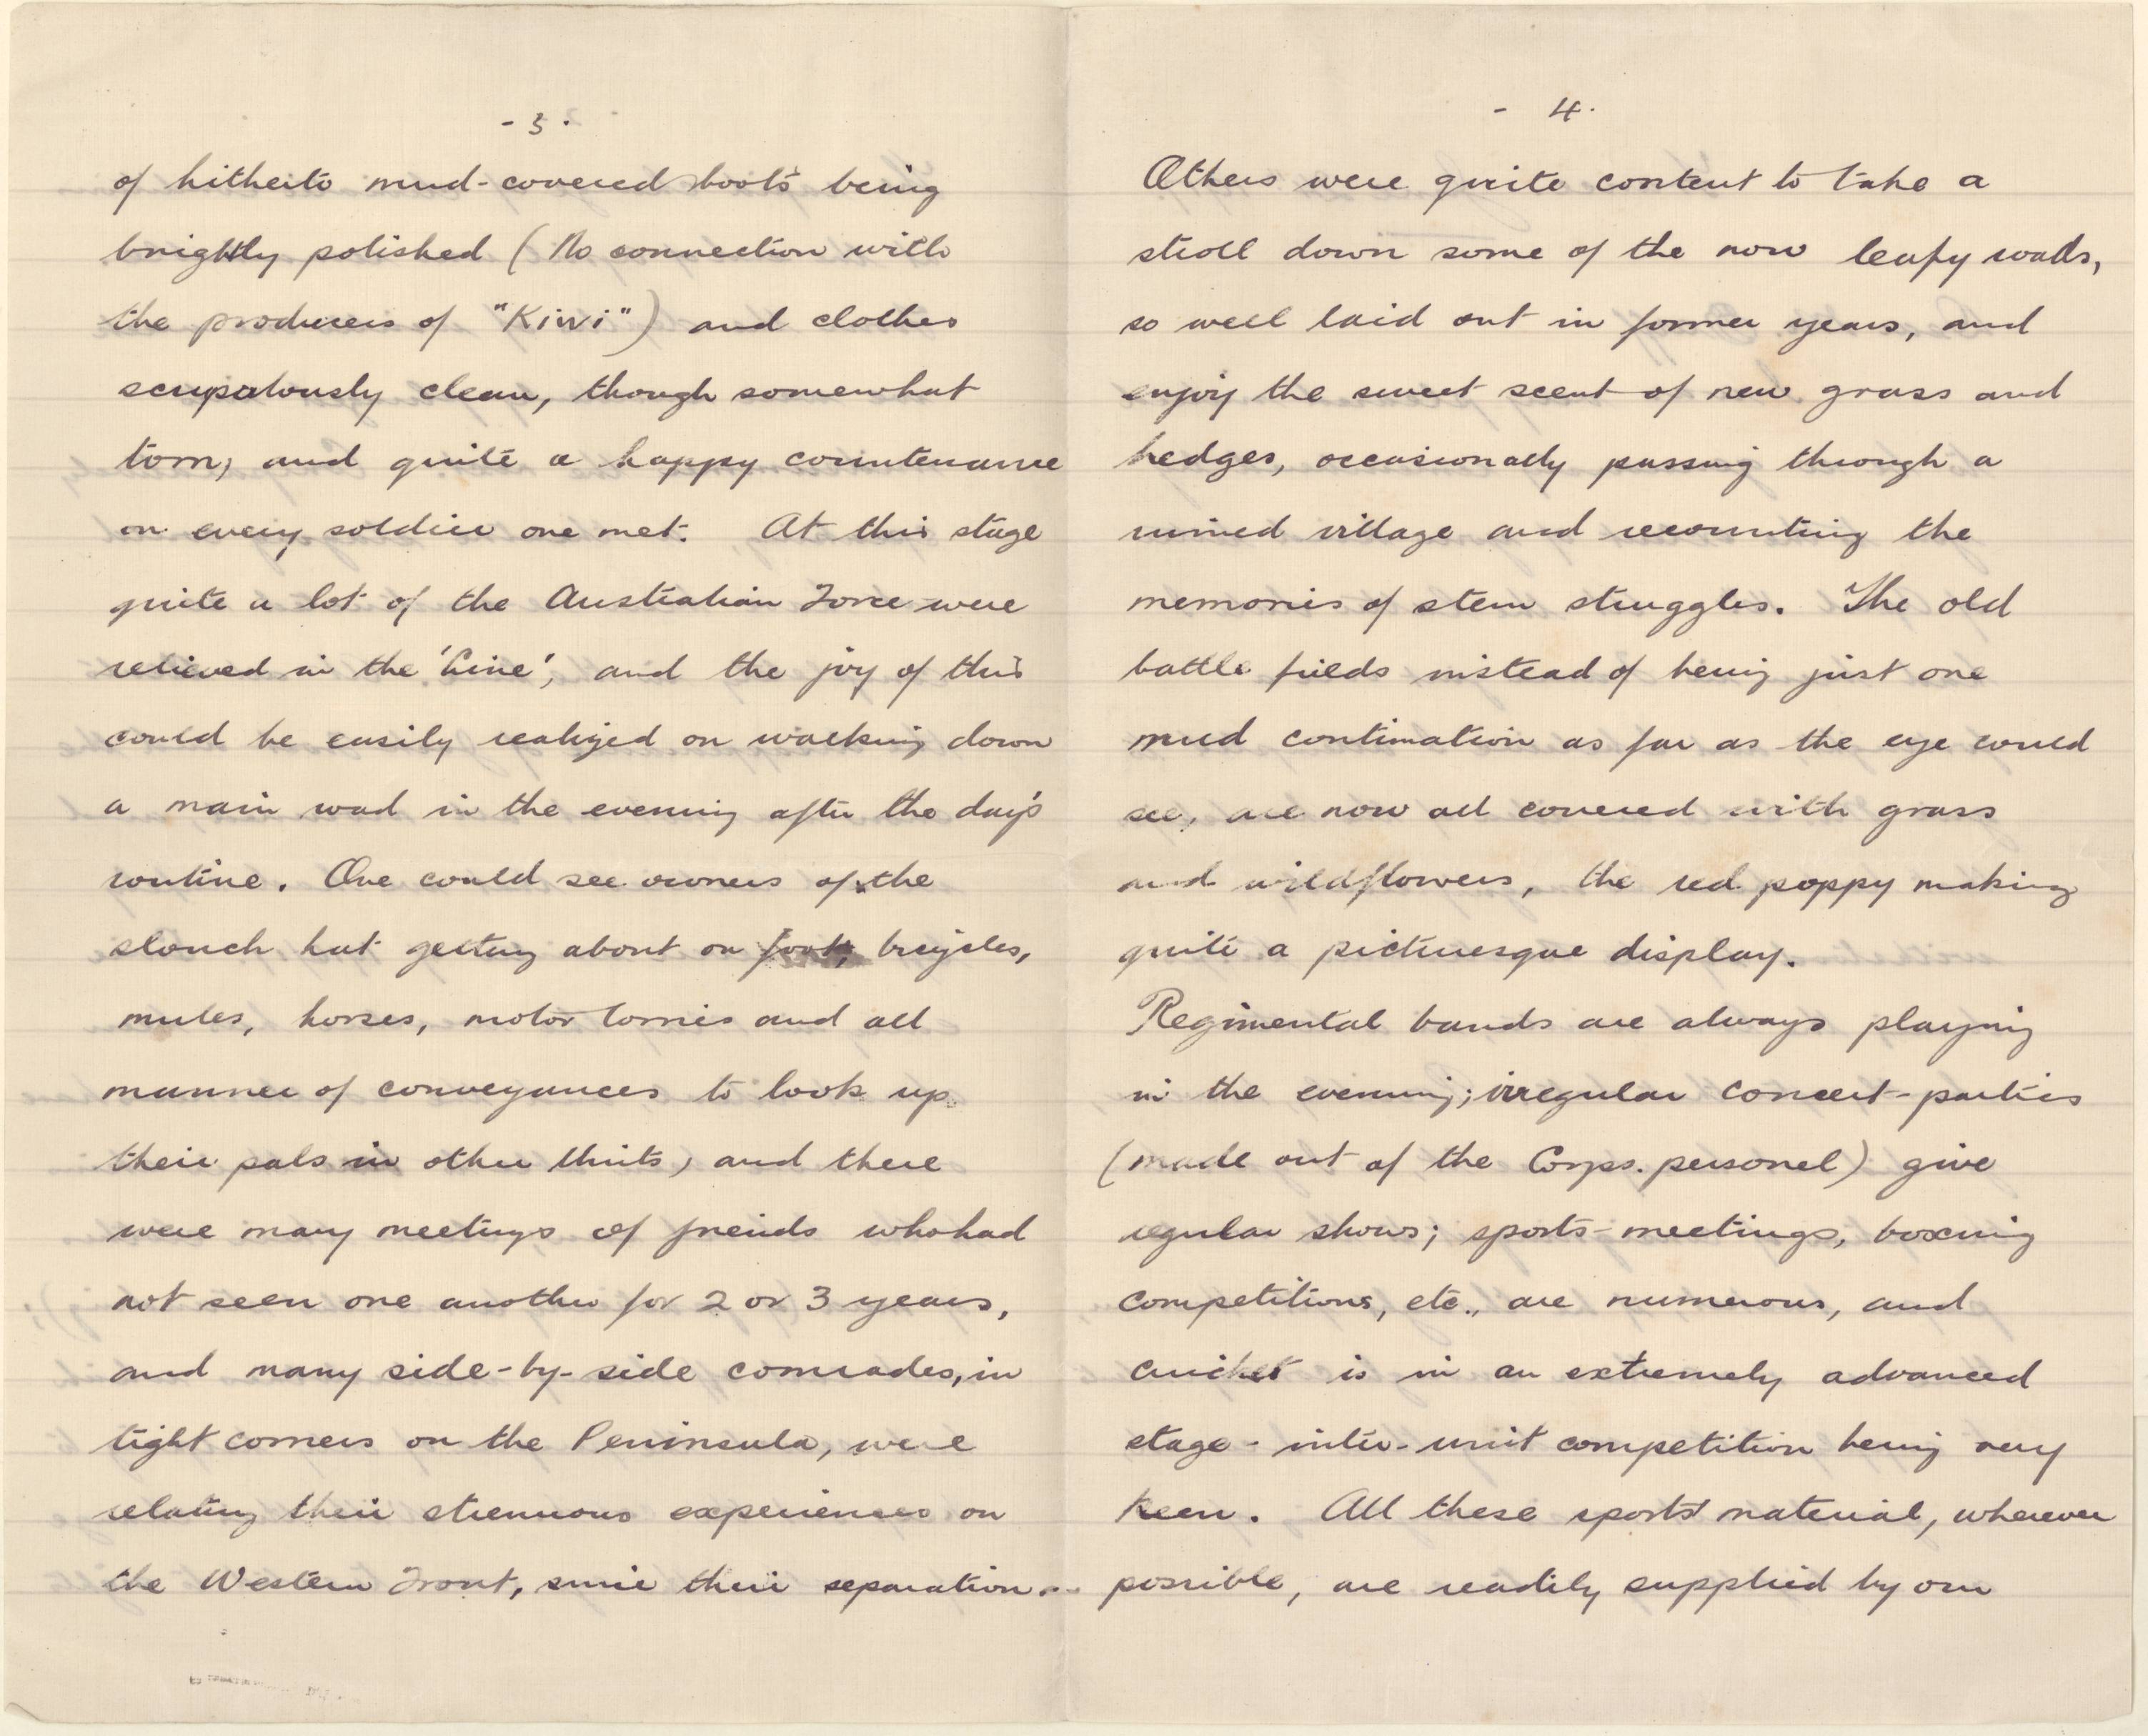 - 3 .
of hitherto mud-covered boots being
brightly polished (No connection with
the producers of "Kiwi") and clothes
scrupulously clean, though somewhat
torn, and quite a happy countenance
on every soldier one met. At this stage
quite a lot of the Australian Force were
relieved in the 'Line', and the joy of this
could be easily realized on walking down
a main road in the evening after the day's
routine. One could see owners of the
slouch hat getting about on foot, bicycles,
mules, horses, motor lorries and all
manner of conveyances to look up
their pals in other Units, and there
were many meetings of friends who had
not seen one another for 2 or 3 years,
and many side-by-side comrades, in
tight corners on the Peninsula, were
relating their strenuous experiences on
the Western Front, since their separation.
- 4.
Others were quite content to take a
stroll down some of the now leafy roads,
so well laid out in former years, and
enjoy the sweet scent of new grass and
hedges, occasionally passing through a
ruined village and recounting the
memories of stern struggles. The old
battle fields instead of being just one
mud contination as far as the eye could
see, are now all covered with grass
and wildflowers, the red poppy making
quite a picturesque display.
Regimental bands are always playing
in the evening; irregular concert-parties
(made out of the Corps. personel) give
regular shows; sports-meetings, boxing
competitions, etc., are numerous, and
cricket is in an extremely advanced
stage - inter-unit competition being very
keen. All these sports' material, wherever
possible, are readily supplied by our